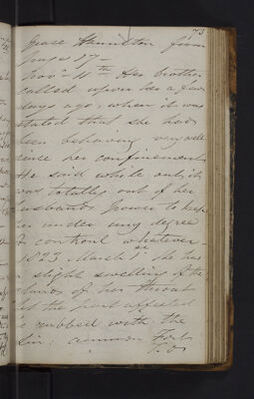 73
Grace Hamilton from
page 17 -
Novr 11th Her brother
called upon her a few
days ago, when it was
stated that she had
been behaving very well
since her confinement
He said while out it
was totally out of her
husbands power to keep
her under any degree
of control whatever -
1823. March 1st She has
a slight swelling of the
glands of her throat
let the part affected
be rubbed with the
Lin: ammon: Fort: